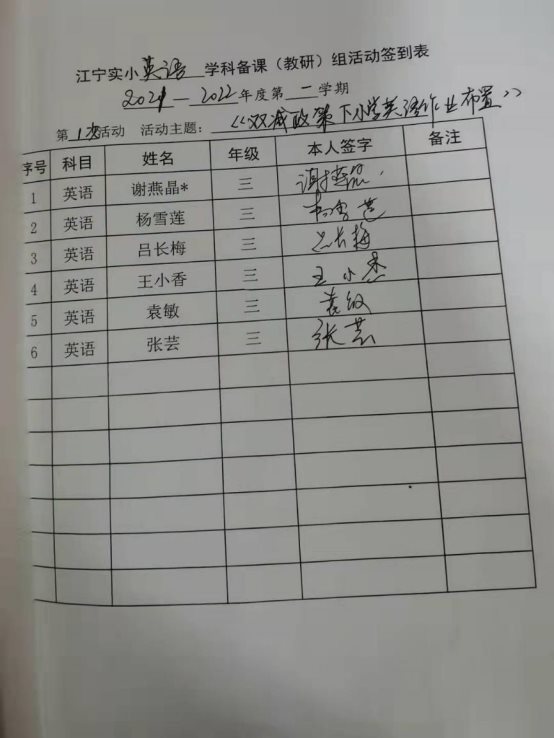 江宁实小 英语 学科备课（教研）组活动签到表
2021—2022年度第 一 学期
第 1次 活动 活动主题：《双减政策下小学英语作业布置》
序号 科目 姓名 年级 本人签字 备注
1 英语 谢燕晶* 三 谢燕晶
2 英语 杨雪莲 三 杨雪莲
3 英语 吕长梅 三 吕长梅
4 英语 王小香 三 王小香
5 英语 袁敏 三 袁敏
6 英语 张芸 三 张芸